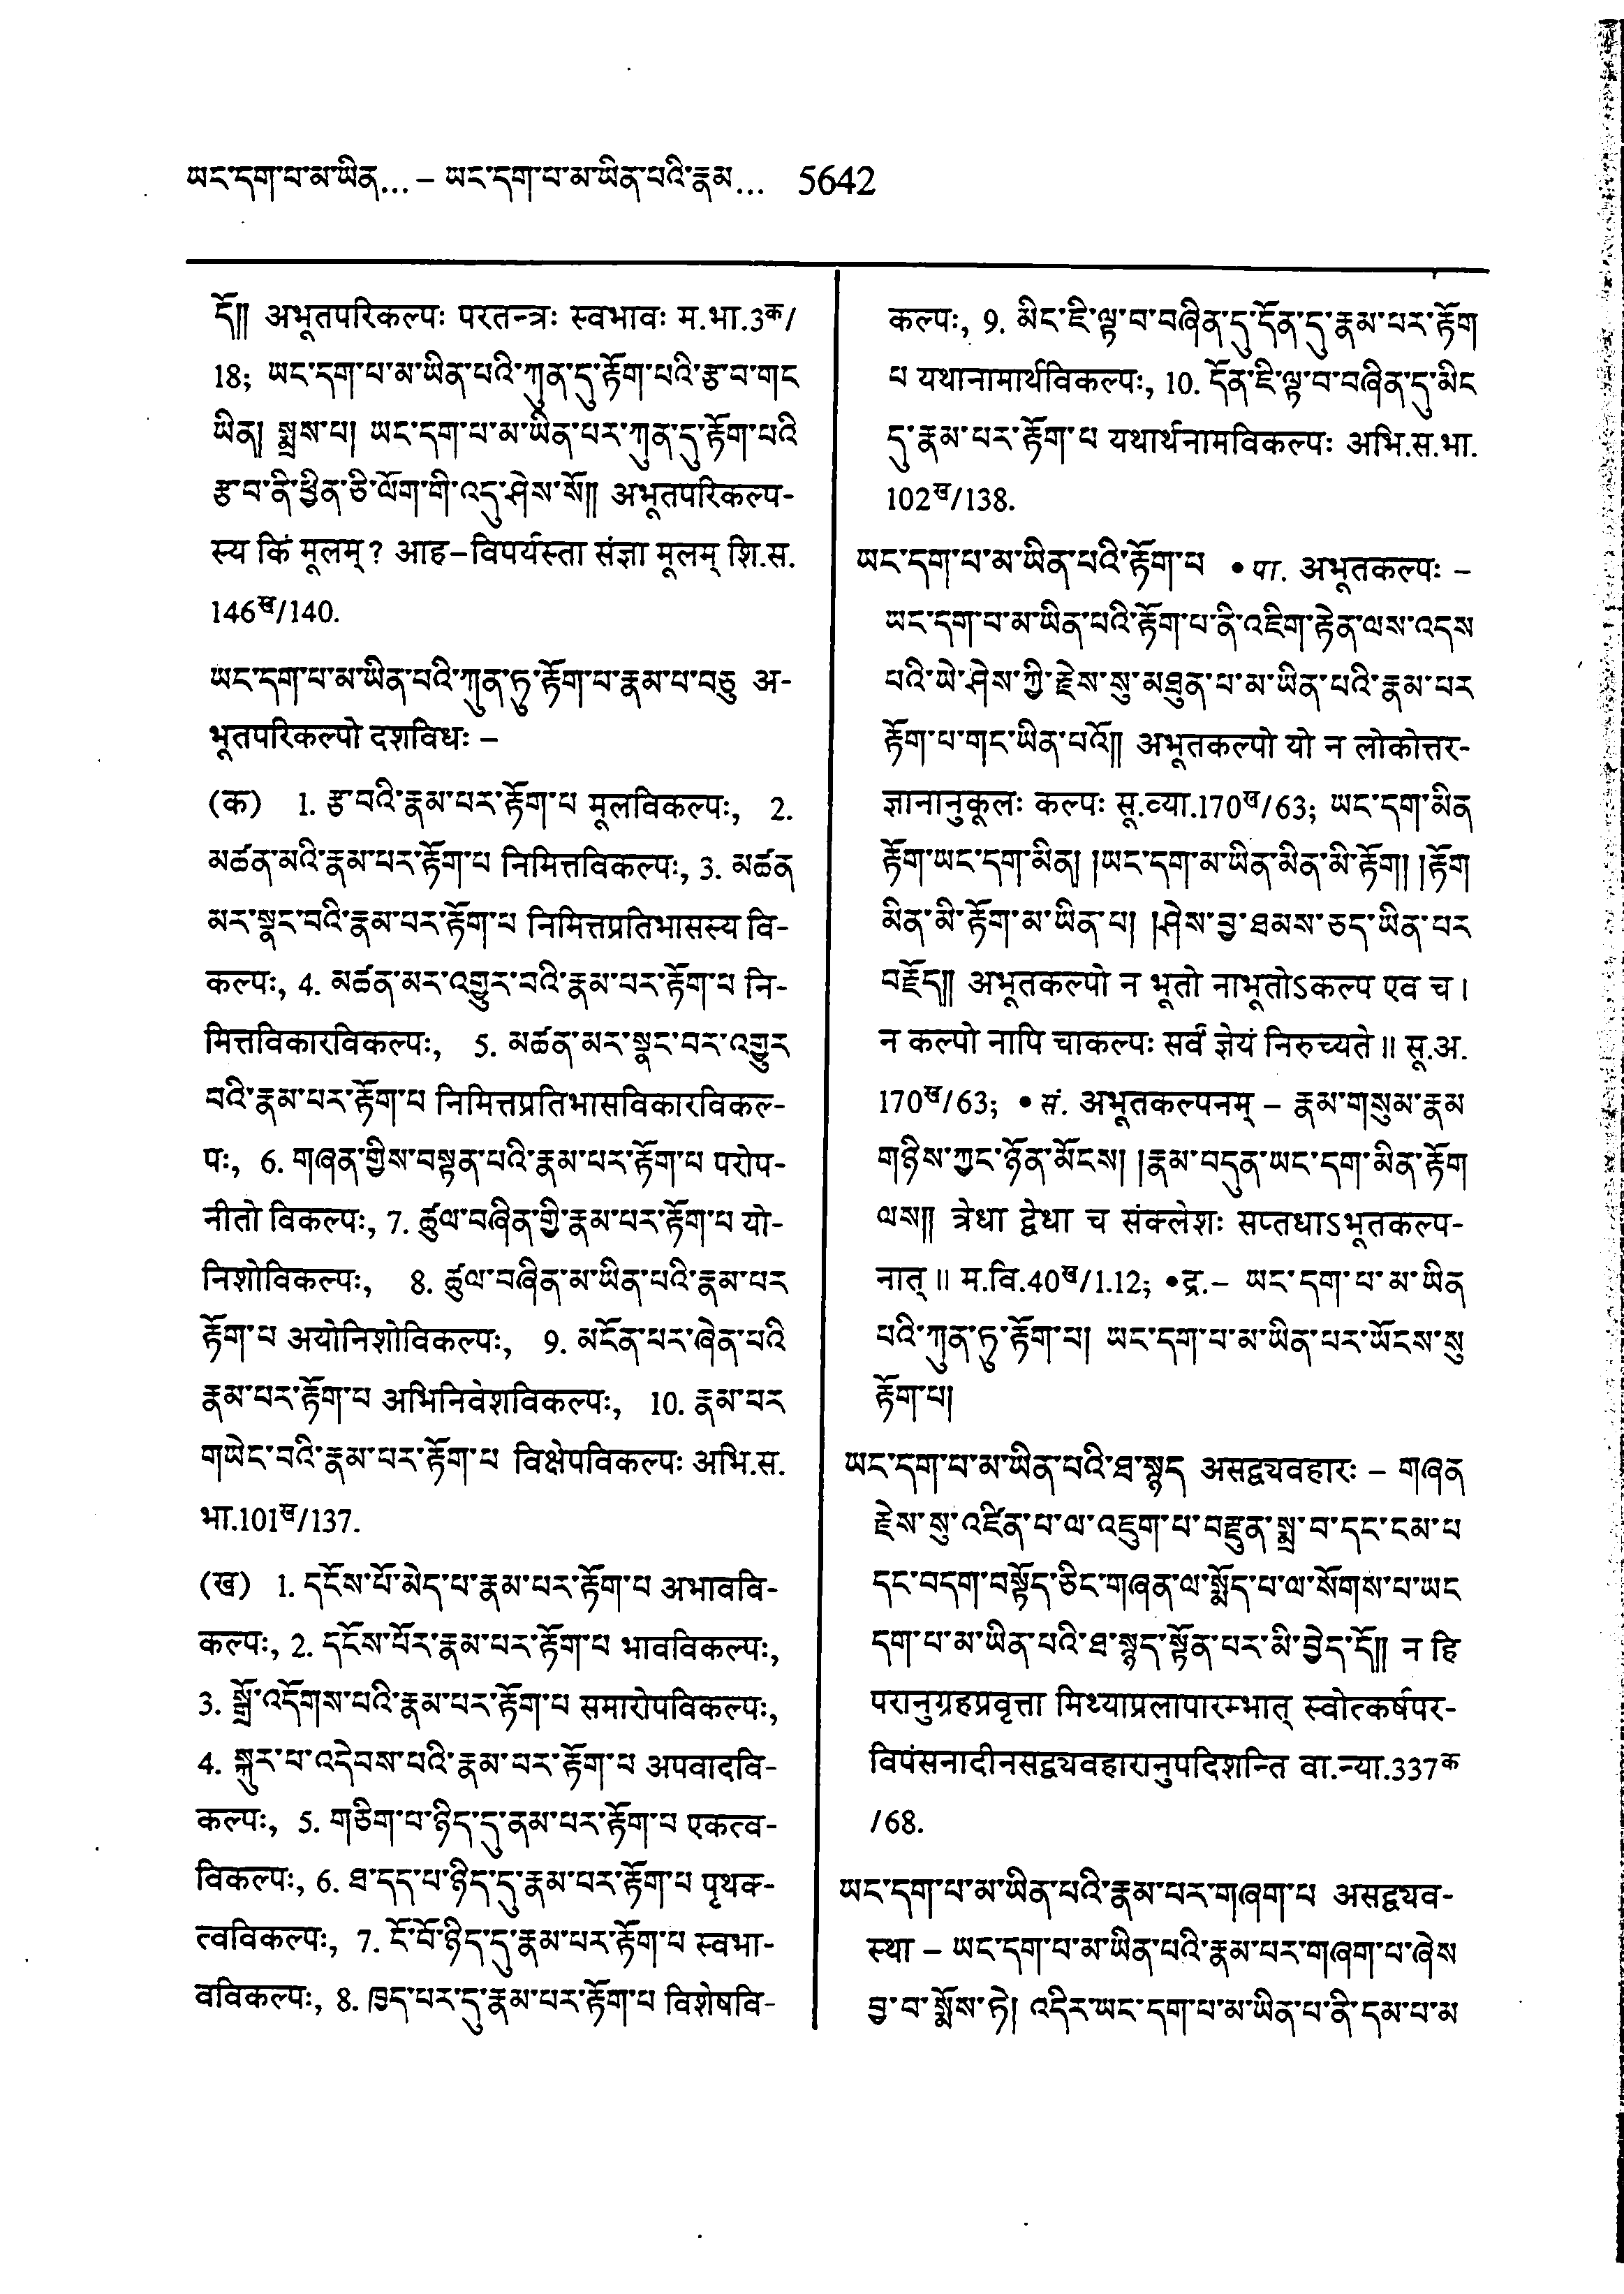 ཡང་དག་པ་མ་ཡིན... – ཡང་དག་པ་མ་ཡིན་པའི་རྣམ... 5642
དོ།། अभूतपरिकल्पः परतन्त्रः स्वभावः म.भा.3क/
18; ཡང་དག་པ་མ་ཡིན་པའི་ཀུན་དུ་རྟོག་པའི་རྩ་བ་གང
ཡིན། སྨྲས་པ། ཡང་དག་པ་མ་ཡིན་པར་ཀུན་དུ་རྟོག་པའི
རྩ་བ་ནི་ཕྱིན་ཅི་ལོག་གི་འདུ་ཤེས་སོ།། अभूतपरिकल्प-
स्य किं मूलम्? आह–विपर्यस्ता संज्ञा मूलम् शि.स.
146ख/140.
ཡང་དག་པ་མ་ཡིན་པའི་ཀུན་ཏུ་རྟོག་པ་རྣམ་པ་བཅུ अ-
भूतपरिकल्पो दशविधः –
(क) 1. རྩ་བའི་རྣམ་པར་རྟོག་པ मूलविकल्पः, 2.
མཚན་མའི་རྣམ་པར་རྟོག་པ निमित्तविकल्पः, 3. མཚན
མར་སྣང་བའི་རྣམ་པར་རྟོག་པ निमित्तप्रतिभासस्य वि-
कल्पः, 4. མཚན་མར་འགྱུར་བའི་རྣམ་པར་རྟོག་པ नि-
मित्तविकारविकल्पः, 5. མཚན་མར་སྣང་བར་འགྱུར
བའི་རྣམ་པར་རྟོག་པ निमित्तप्रतिभासविकारविकल्-
पः, 6. གཞན་གྱིས་བསྟན་པའི་རྣམ་པར་རྟོག་པ परोप-
नीतो विकल्पः, 7. ཚུལ་བཞིན་གྱི་རྣམ་པར་རྟོག་པ यो-
निशोविकल्पः, 8. ཚུལ་བཞིན་མ་ཡིན་པའི་རྣམ་པར
རྟོག་པ अयोनिशोविकल्पः, 9. མངོན་པར་ཞེན་པའི
རྣམ་པར་རྟོག་པ अभिनिवेशविकल्पः, 10. རྣམ་པར
གཡེང་བའི་རྣམ་པར་རྟོག་པ विक्षेपविकल्पः अभि.स.
भा.101ख/137.
(ख) 1. དངོས་པོ་མེད་པ་རྣམ་པར་རྟོག་པ अभाववि-
कल्पः, 2. དངོས་པོར་རྣམ་པར་རྟོག་པ भावविकल्पः,
3. སྒྲོ་འདོགས་པའི་རྣམ་པར་རྟོག་པ समारोपविकल्पः,
4. སྐུར་པ་འདེབས་པའི་རྣམ་པར་རྟོག་པ अपवादवि-
कल्पः, 5. གཅིག་པ་ཉིད་དུ་ནམ་པར་རྟོག་པ एकत्व-
विकल्पः, 6. ཐ་དད་པ་ཉིད་དུ་རྣམ་པར་རྟོག་པ पृथक्-
त्वविकल्पः, 7. ངོ་བོ་ཉིད་དུ་རྣམ་པར་རྟོག་པ स्वभा-
वविकल्पः, 8. ཁྱད་པར་དུ་རྣམ་པར་རྟོག་པ विशेषवि-
कल्पः, 9. མིང་ཇི་ལྟ་བ་བཞིན་དུ་དོན་དུ་རྣམ་པར་རྟོག
པ यथानामार्थविकल्पः, 10. དོན་ཇི་ལྟ་བ་བཞིན་དུ་མིང
དུ་རྣམ་པར་རྟོག་པ यथार्थनामविकल्पः अभि.स.भा.
102ख/138.
ཡང་དག་པ་མ་ཡིན་པའི་རྟོག་པ • पा. अभूतकल्पः –
ཡང་དག་པ་མ་ཡིན་པའི་རྟོག་པ་ནི་འཇིག་རྟེན་ལས་འདས
པའི་ཡེ་ཤེས་ཀྱི་རྗེས་སུ་མཐུན་པ་མ་ཡིན་པའི་རྣམ་པར
རྟོག་པ་གང་ཡིན་པའོ།། अभूतकल्पो यो न लोकोत्तर-
ज्ञानानुकूलः कल्पः सू.व्या.170ख/63; ཡང་དག་མིན
རྟོག་ཡང་དག་མིན། །ཡང་དག་མ་ཡིན་མིན་མི་རྟོག། །རྟོག
མིན་མི་རྟོག་མ་ཡིན་པ། །ཤེས་བྱ་ཐམས་ཅད་ཡིན་པར
བརྗོད།། अभूतकल्पो न भूतो नाभूतोऽकल्प एव च।
न कल्पो नापि चाकल्पः सर्वं ज्ञेयं निरुच्यते॥ सू.अ.
170ख/63; • सं. अभूतकल्पनम् – རྣམ་གསུམ་རྣམ
གཉིས་ཀྱང་ཉོན་མོངས། །རྣམ་བདུན་ཡང་དག་མིན་རྟོག
ལས།། त्रेधा द्वेधा च संक्लेशः सप्तधाऽभूतकल्प-
नात्॥ म.वि.40ख/1.12; •द्र.– ཡང་དག་པ་མ་ཡིན
པའི་ཀུན་ཏུ་རྟོག་པ། ཡང་དག་པ་མ་ཡིན་པར་ཡོངས་སུ
རྟོག་པ།
ཡང་དག་པ་མ་ཡིན་པའི་ཐ་སྙད असद्व्यवहारः – གཞན
རྗེས་སུ་འཛིན་པ་ལ་འཇུག་པ་བརྫུན་སྨྲ་བ་དང་ངམ་པ
དང་བདག་བསྟོད་ཅིང་གཞན་ལ་སྨོད་པ་ལ་སོགས་པ་ཡང
དག་པ་མ་ཡིན་པའི་ཐ་སྙད་སྟོན་པར་མི་བྱེད་དོ།། न हि
परानुग्रहप्रवृत्ता मिथ्याप्रलापारम्भात् स्वोत्कर्षपर-
विपंसनादीनसद्व्यवहारानुपदिशन्ति वा.न्या.337क
/68.
ཡང་དག་པ་མ་ཡིན་པའི་རྣམ་པར་གཞག་པ असद्व्यव-
स्था – ཡང་དག་པ་མ་ཡིན་པའི་རྣམ་པར་གཞག་པ་ཞེས
བྱ་བ་སྨོས་ཏེ། འདིར་ཡང་དག་པ་མ་ཡིན་པ་ནི་དམ་པ་མ